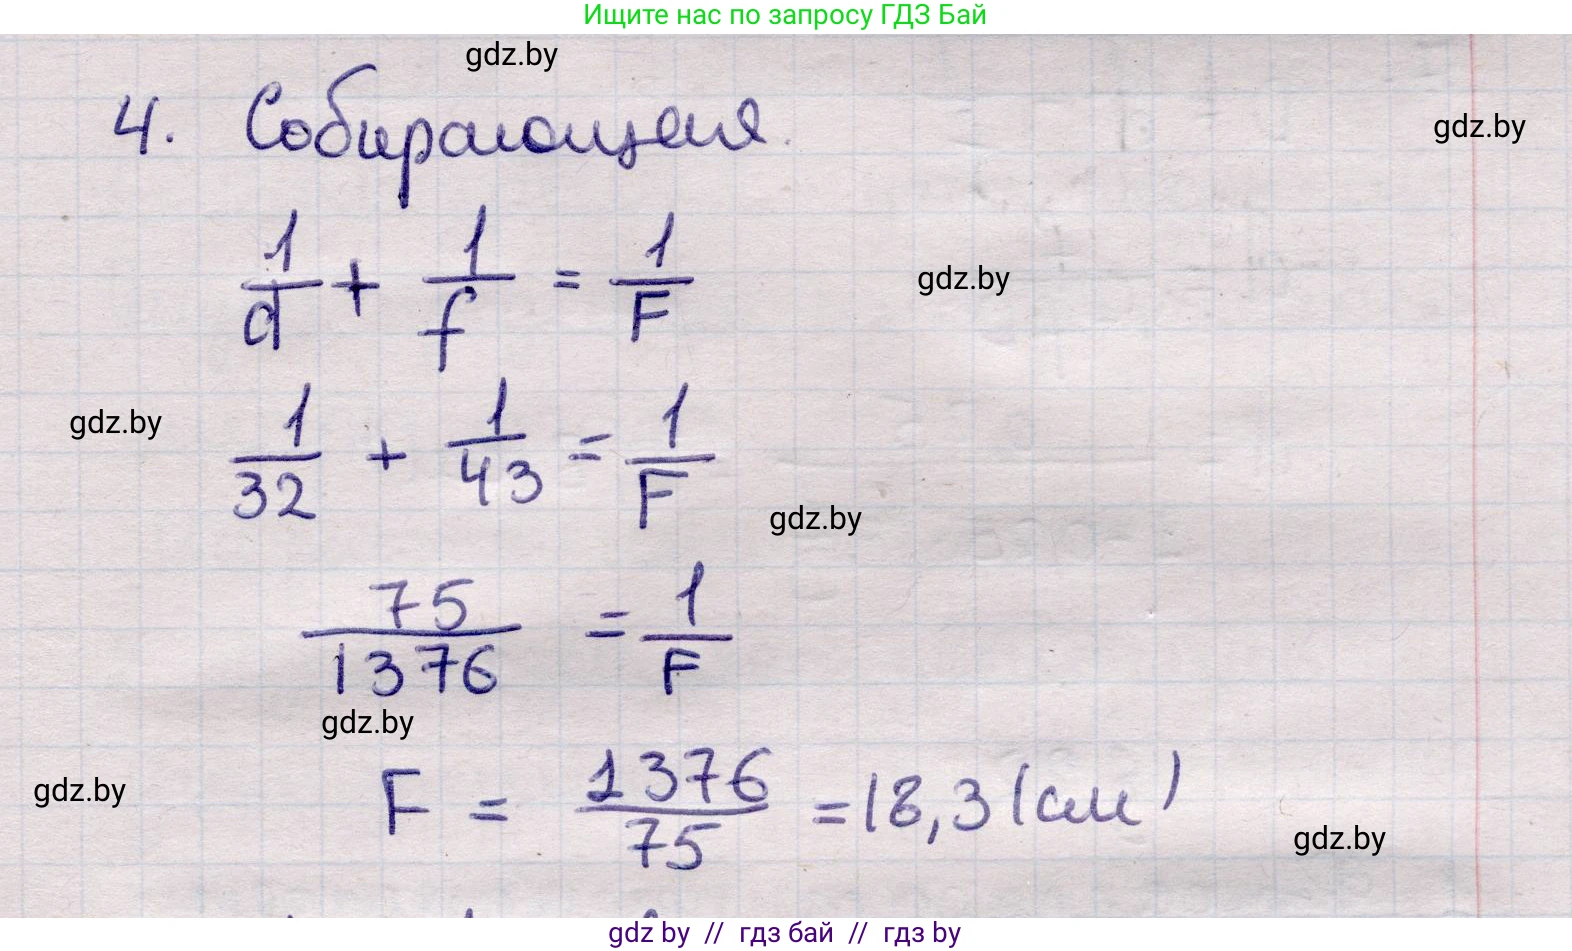 Ищите нас по запросу ГДЗ Бай
gdz.by
4. Собирающая
gdz.by
1/d + 1/f = 1/F
gdz.by
gdz.by
1/32 + 1/43 = 1/F
gdz.by
75/1376 = 1/F
gdz.by
gdz.by
F = 1376/75 = 18,3 (см)
gdz.by
gdz.by // гдз бай // гдз by